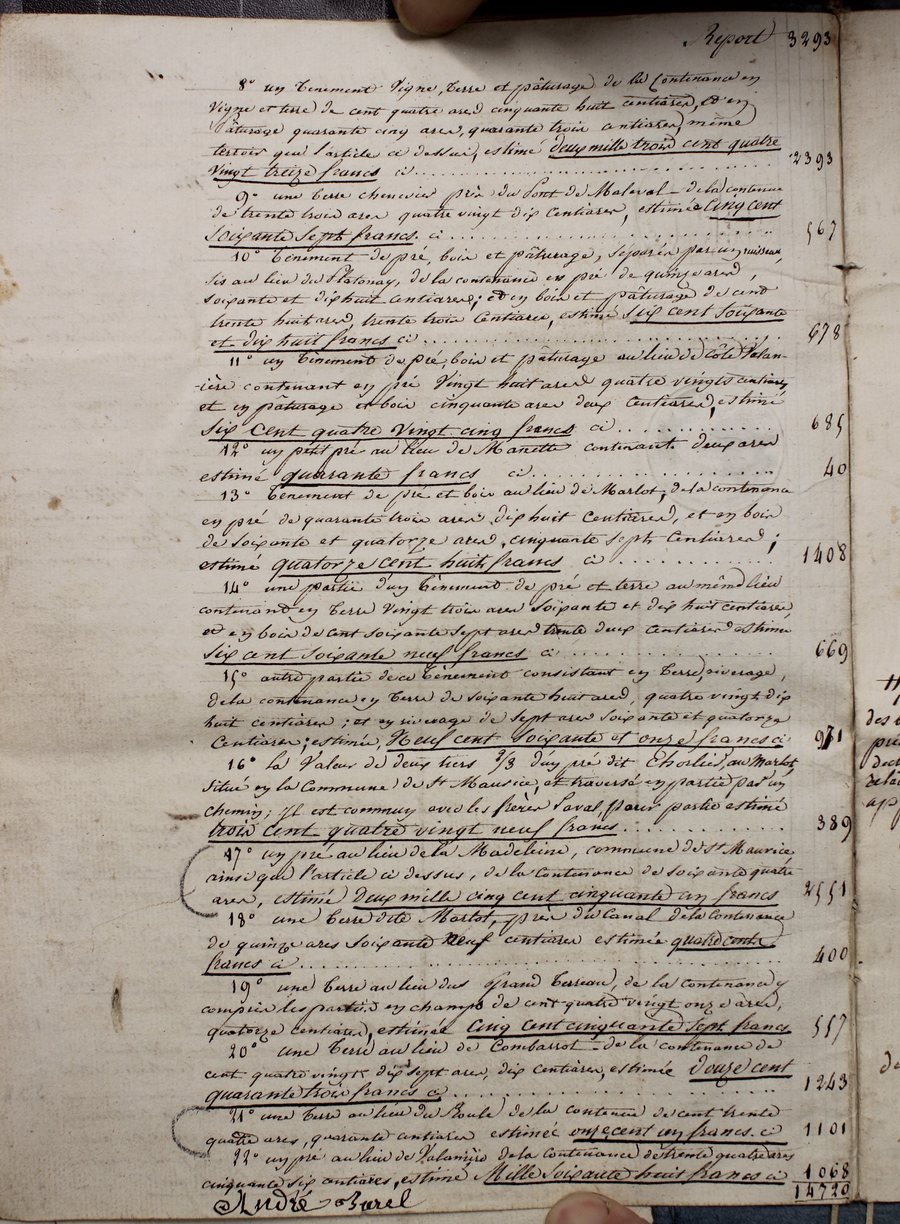 Report 3293
8° un Tènement Vigne, Terre et pâturage de la Contenance en
Vigne et terre de cent quatre ares cinquante huit centiares, et en
Pâturage quarante cinq ares, quarante trois centiares, même
terroir que l'article ci dessus, estimé deux mille trois cent quatre
Vingt treize francs ci 2393
9° une Terre chenevier près du Pont de Maleval de la contenue
de trente trois ares quatre vingt dix Centiares, estimée Cinq cent
soixante sept francs. ci 567
10° Tènement de pré, bois et pâturage, séparés par un ruisseau,
sis au lieu du Platonay, de la contenance en pré de quinze ares,
soixante et dix huit centiares; et en bois et pâturage de cent
trente huit ares, trente trois Centiares, estimé six cent soixante
et dix huit francs ci 678
11° un Tènement de pré, bois et pâturage au lieu de Côte Valan-
-ière contenant en pré Vingt huit ares quatre vingts centiares
et en pâturage et bois cinquante ares deux Centiares, estimé
six Cent quatre Vingt cinq francs ci 685
12° un petit pré au lieu de contenant deux ares
estimé quarante francs ci 40
13° Tènement de pré et bois au lieu de Marlot, de la contenance
en pré de quarante trois ares dix huit Centiares, et en bois
de soixante et quatorze ares, cinquante sept Centiares;
estimé quatorze cent huit francs ci 1408
14° une partie d'un Tènement de pré et terre au même lieu
contenant en Terre Vingt trois ares soixante et dix huit centiares,
et en bois de cent soixante sept ares trente deux centiares estimée
six cent soixante neuf francs ci 669
15° autre partie de ce Tènement consistant en Terre, riverage,
de la contenance en Terre de soixante huit ares, quatre vingt dix
huit centiares; et en riverage de sept ares soixante et quatorze
Centiares; estimée, Neuf cent soixante et onze francs ci 971
16° la Valeur de deux tiers 2/3 d'un pré dit Chorlier, au Marlot
situé en la Commune de St Maurice, et traversé en partie par un
chemin; Il est commun avec les frères Paval, partie estimé
trois cent quatre vingt neuf francs 389
17° un pré au lieu de la Madeleine, commune de St Maurice
ainsi que l'article ci dessus, de la Contenance de soixante quatre
ares, estimé deux mille cinq cent cinquante un francs 2551
18° une Terre dite Marlot, près du Canal de la Contenance
de quinze ares soixante neuf centiares estimée quatre cents
francs ci 400
19° une Terre au lieu du Grand Terreau, de la contenance y
compris les parties en champ de cent quatre vingt onze ares,
quatorze centiares, estimée Cinq Cent cinquante sept francs 557
20° une Terre au lieu de Combarrot de la contenance de
cent quatre vingts dix sept ares, dix centiares, estimée Douze cent
quarante trois francs ci 1243
21° une Terre au lieu du Roule de la contenue de cent trente
quatre ares, quarante centiares estimée onze cent un francs. ci 1101
22° un pré au lieu de de la Contenance de trente quatre ares
cinquante six centiares, estimé Mille soixante huit francs ci 1068
14720
André Borel